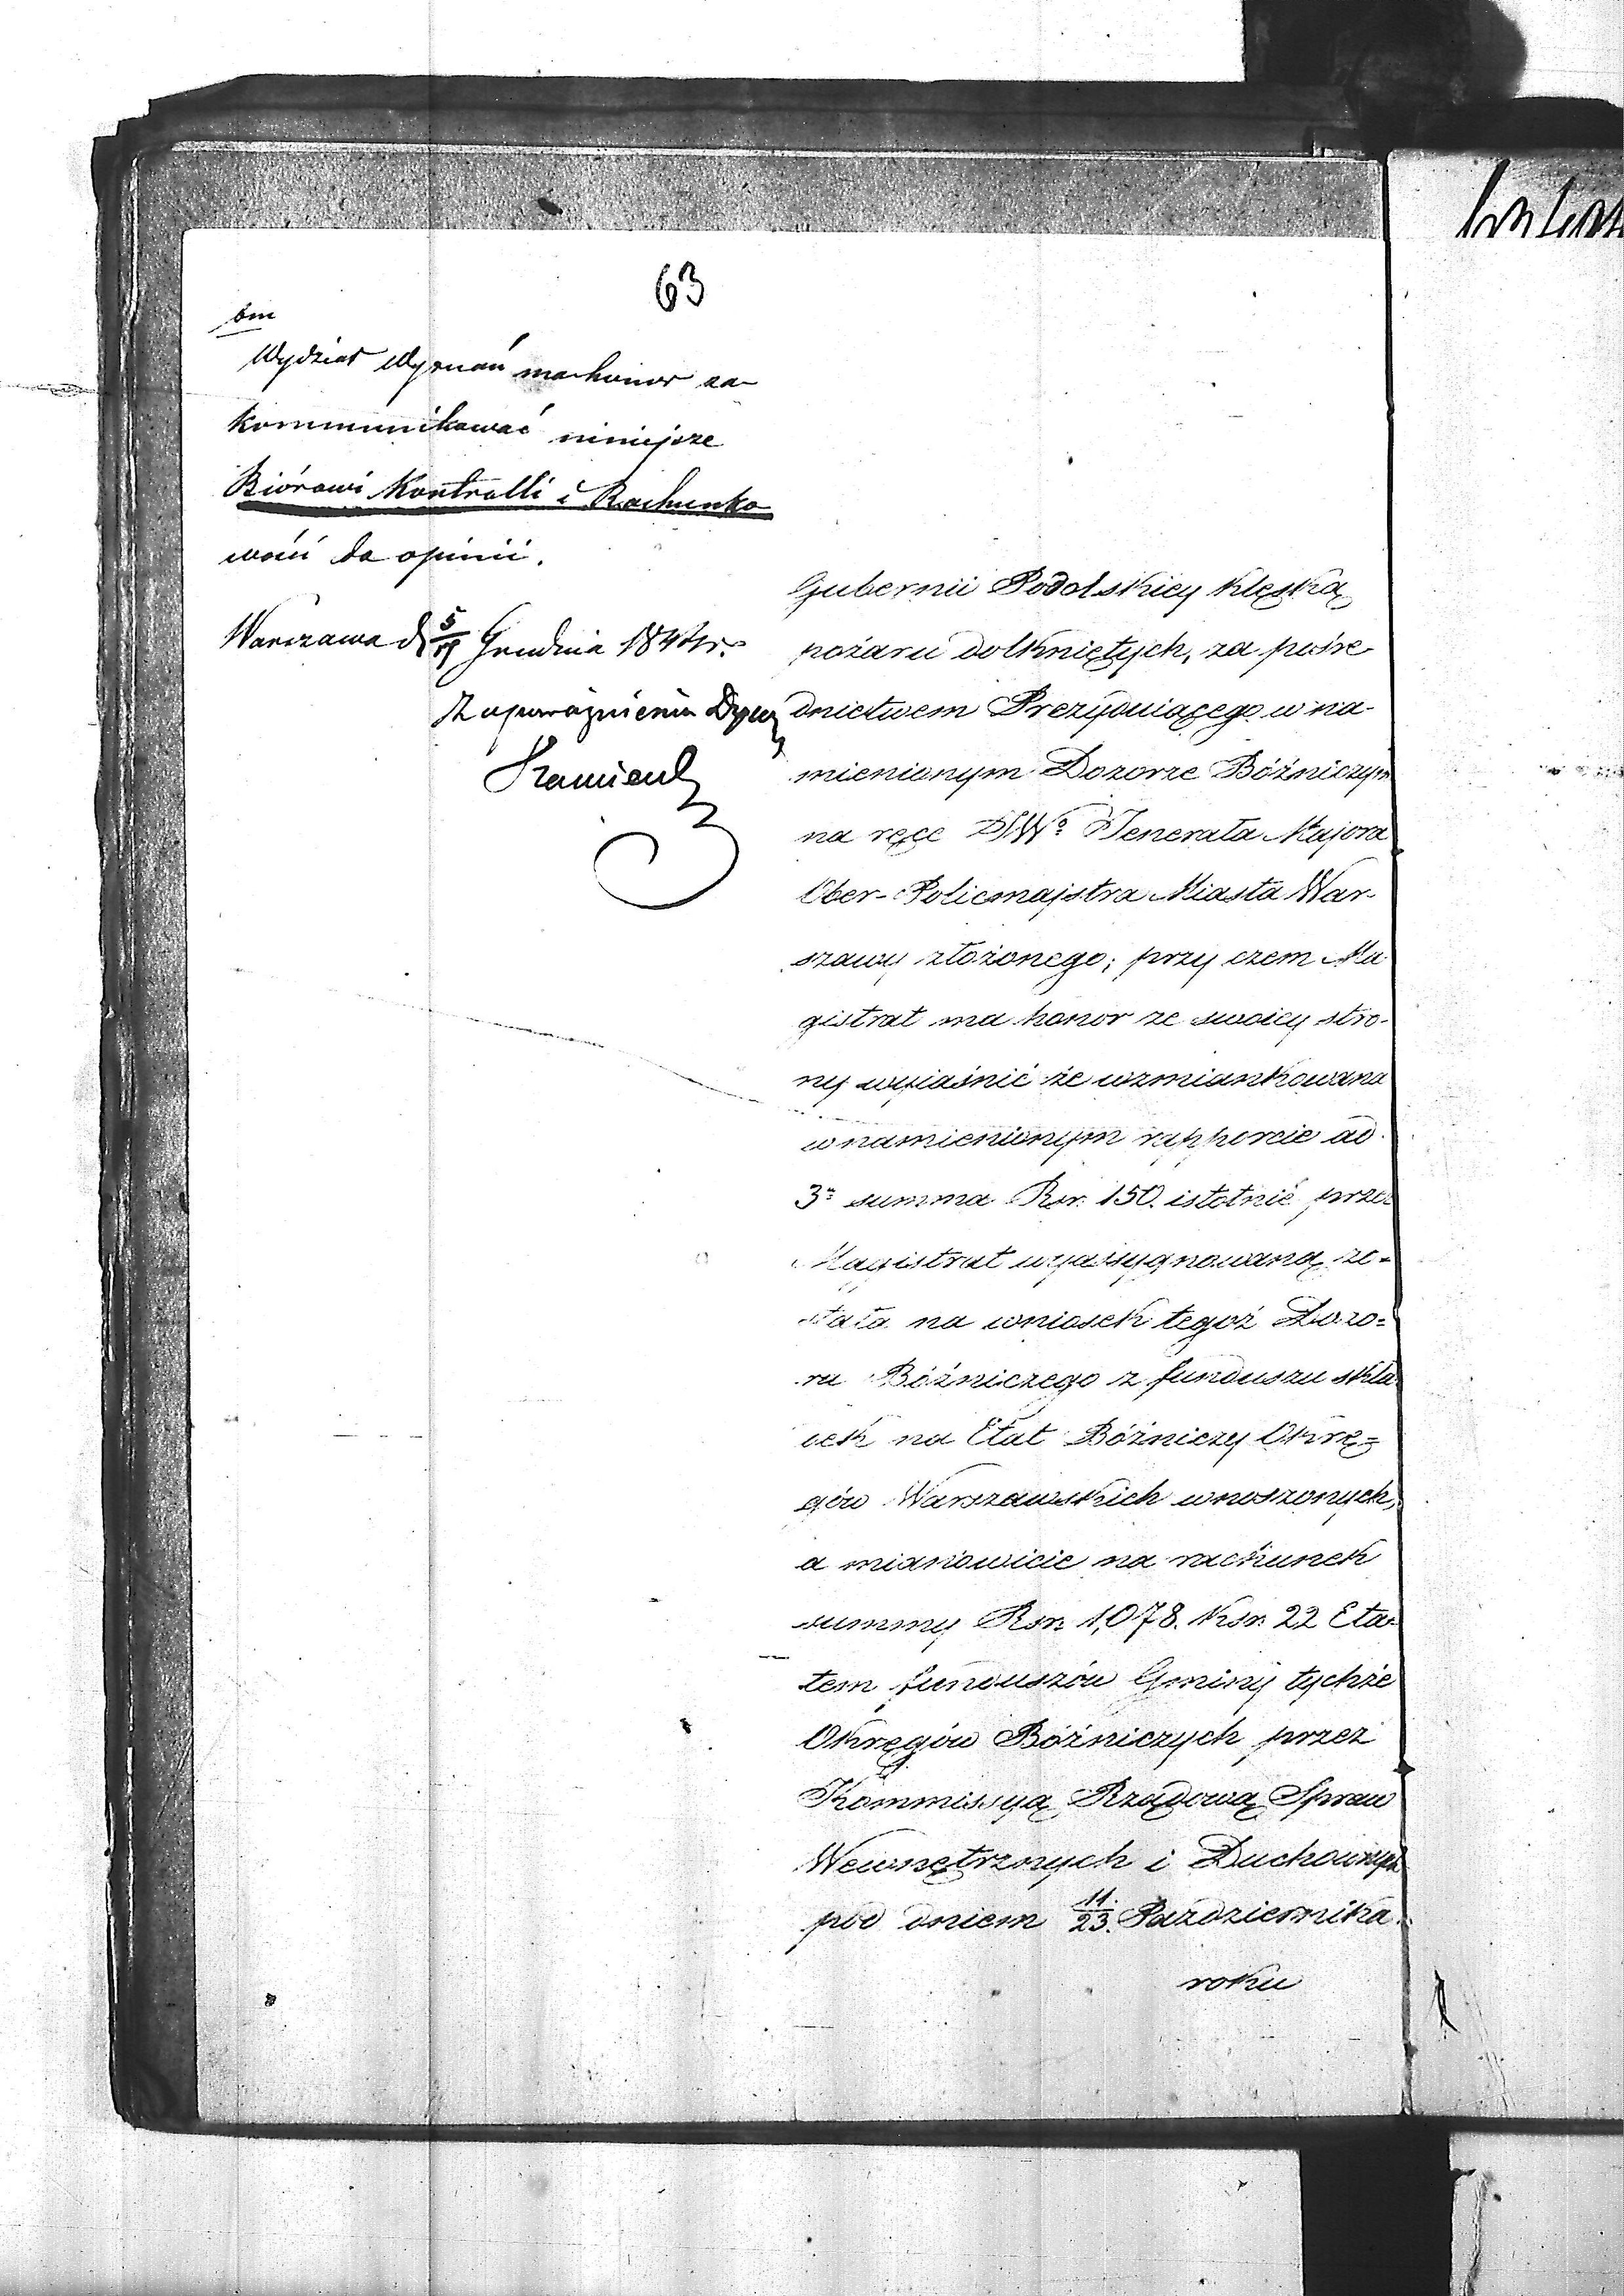 63
bm
Wydział Wyznań ma honor za-
kommunikować niniejsze
Biórowi Kontrolli i Rachunko
wości do opinii.
Warszawa d 5/17 Grudnia 1844 r.
Z upoważnienia Dyr
Gubernii Podolskiey klęską
pożaru dotkniętych, za pośre-
dnictwem Prezyduiącego w na-
mienionym Dozorze Bóźniczym
na ręce JWo Jenerała Majora
Ober-Policmajstra Miasta War-
szawy złożonego; przy czem Ma
gistrat ma honor ze swoiey stro-
ny wyiaśnić że wzmiankowana
w namienionym rapporcie ad
3m summa Rsr. 150. istotnie przez
Magistrat wyassygnowaną zo-
stała na wniosek tegoż Dozo=
ru Bóźniczego z funduszu skła
dek na Etat Bóźniczy Okrę=
gów Warszawskich wnoszonych,
a mianowicie na rachunek
summy Rsr. 1,078. Ksr. 22 Eta-
tem funduszów Gminy tychże
Okręgów Bóźniczych przez
Kommissyą Rządową Spraw
Wewnętrznych i Duchownych
pod dniem 11./23. Pazdziernika
roku